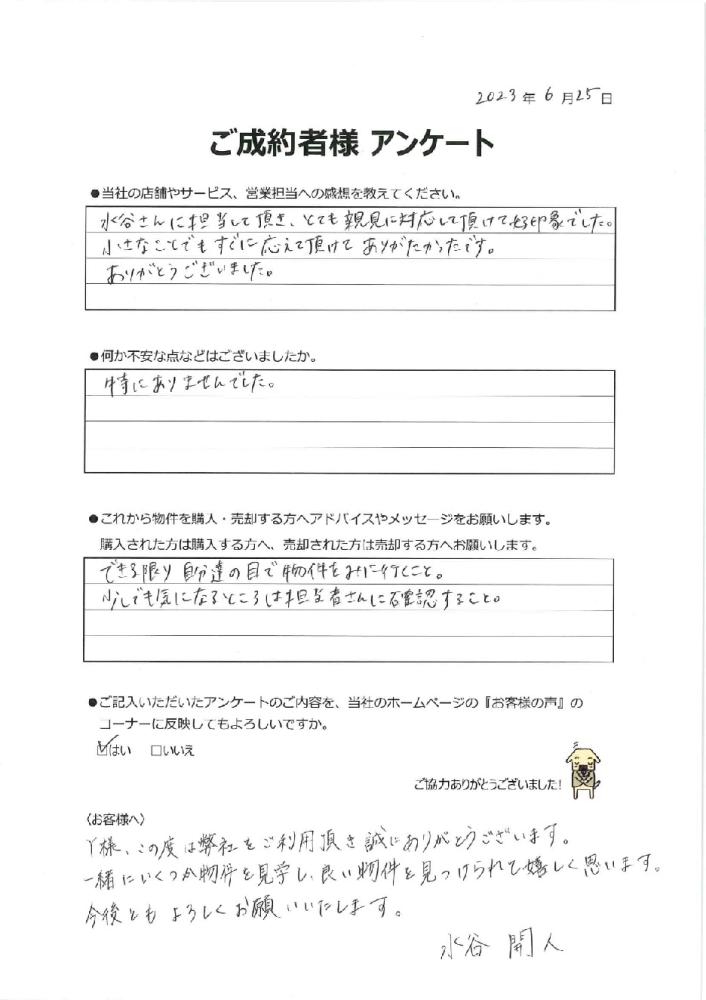 2023年6月25日
ご成約者様 アンケート
●当社の店舗やサービス、営業担当への感想を教えてください。
水谷さんに担当して頂き、とても親見に対応して頂けて好印象でした。
小さなことでもすぐに応えて頂けて ありがたかったです。
ありがとうございました。
●何か不安な点などはございましたか。
特にありませんでした。
●これから物件を購入・売却する方へアドバイスやメッセージをお願いします。
購入された方は購入する方へ、売却された方は売却する方へお願いします。
できる限り 自分達の目で物件をみに行くこと。
少しでも気になるところは担当者さんに確認すること。
●ご記入いただいたアンケートのご内容を、当社のホームページの『お客様の声』の
コーナーに反映してもよろしいですか。
☑はい □いいえ
ご協力ありがとうございました!
〈お客様へ〉
Y様、この度は弊社をご利用頂き誠にありがとうございます。
一緒にいくつか物件を見学し、良い物件を見つけられて嬉しく思います。
今後とも よろしくお願いいたします。
水谷 開人